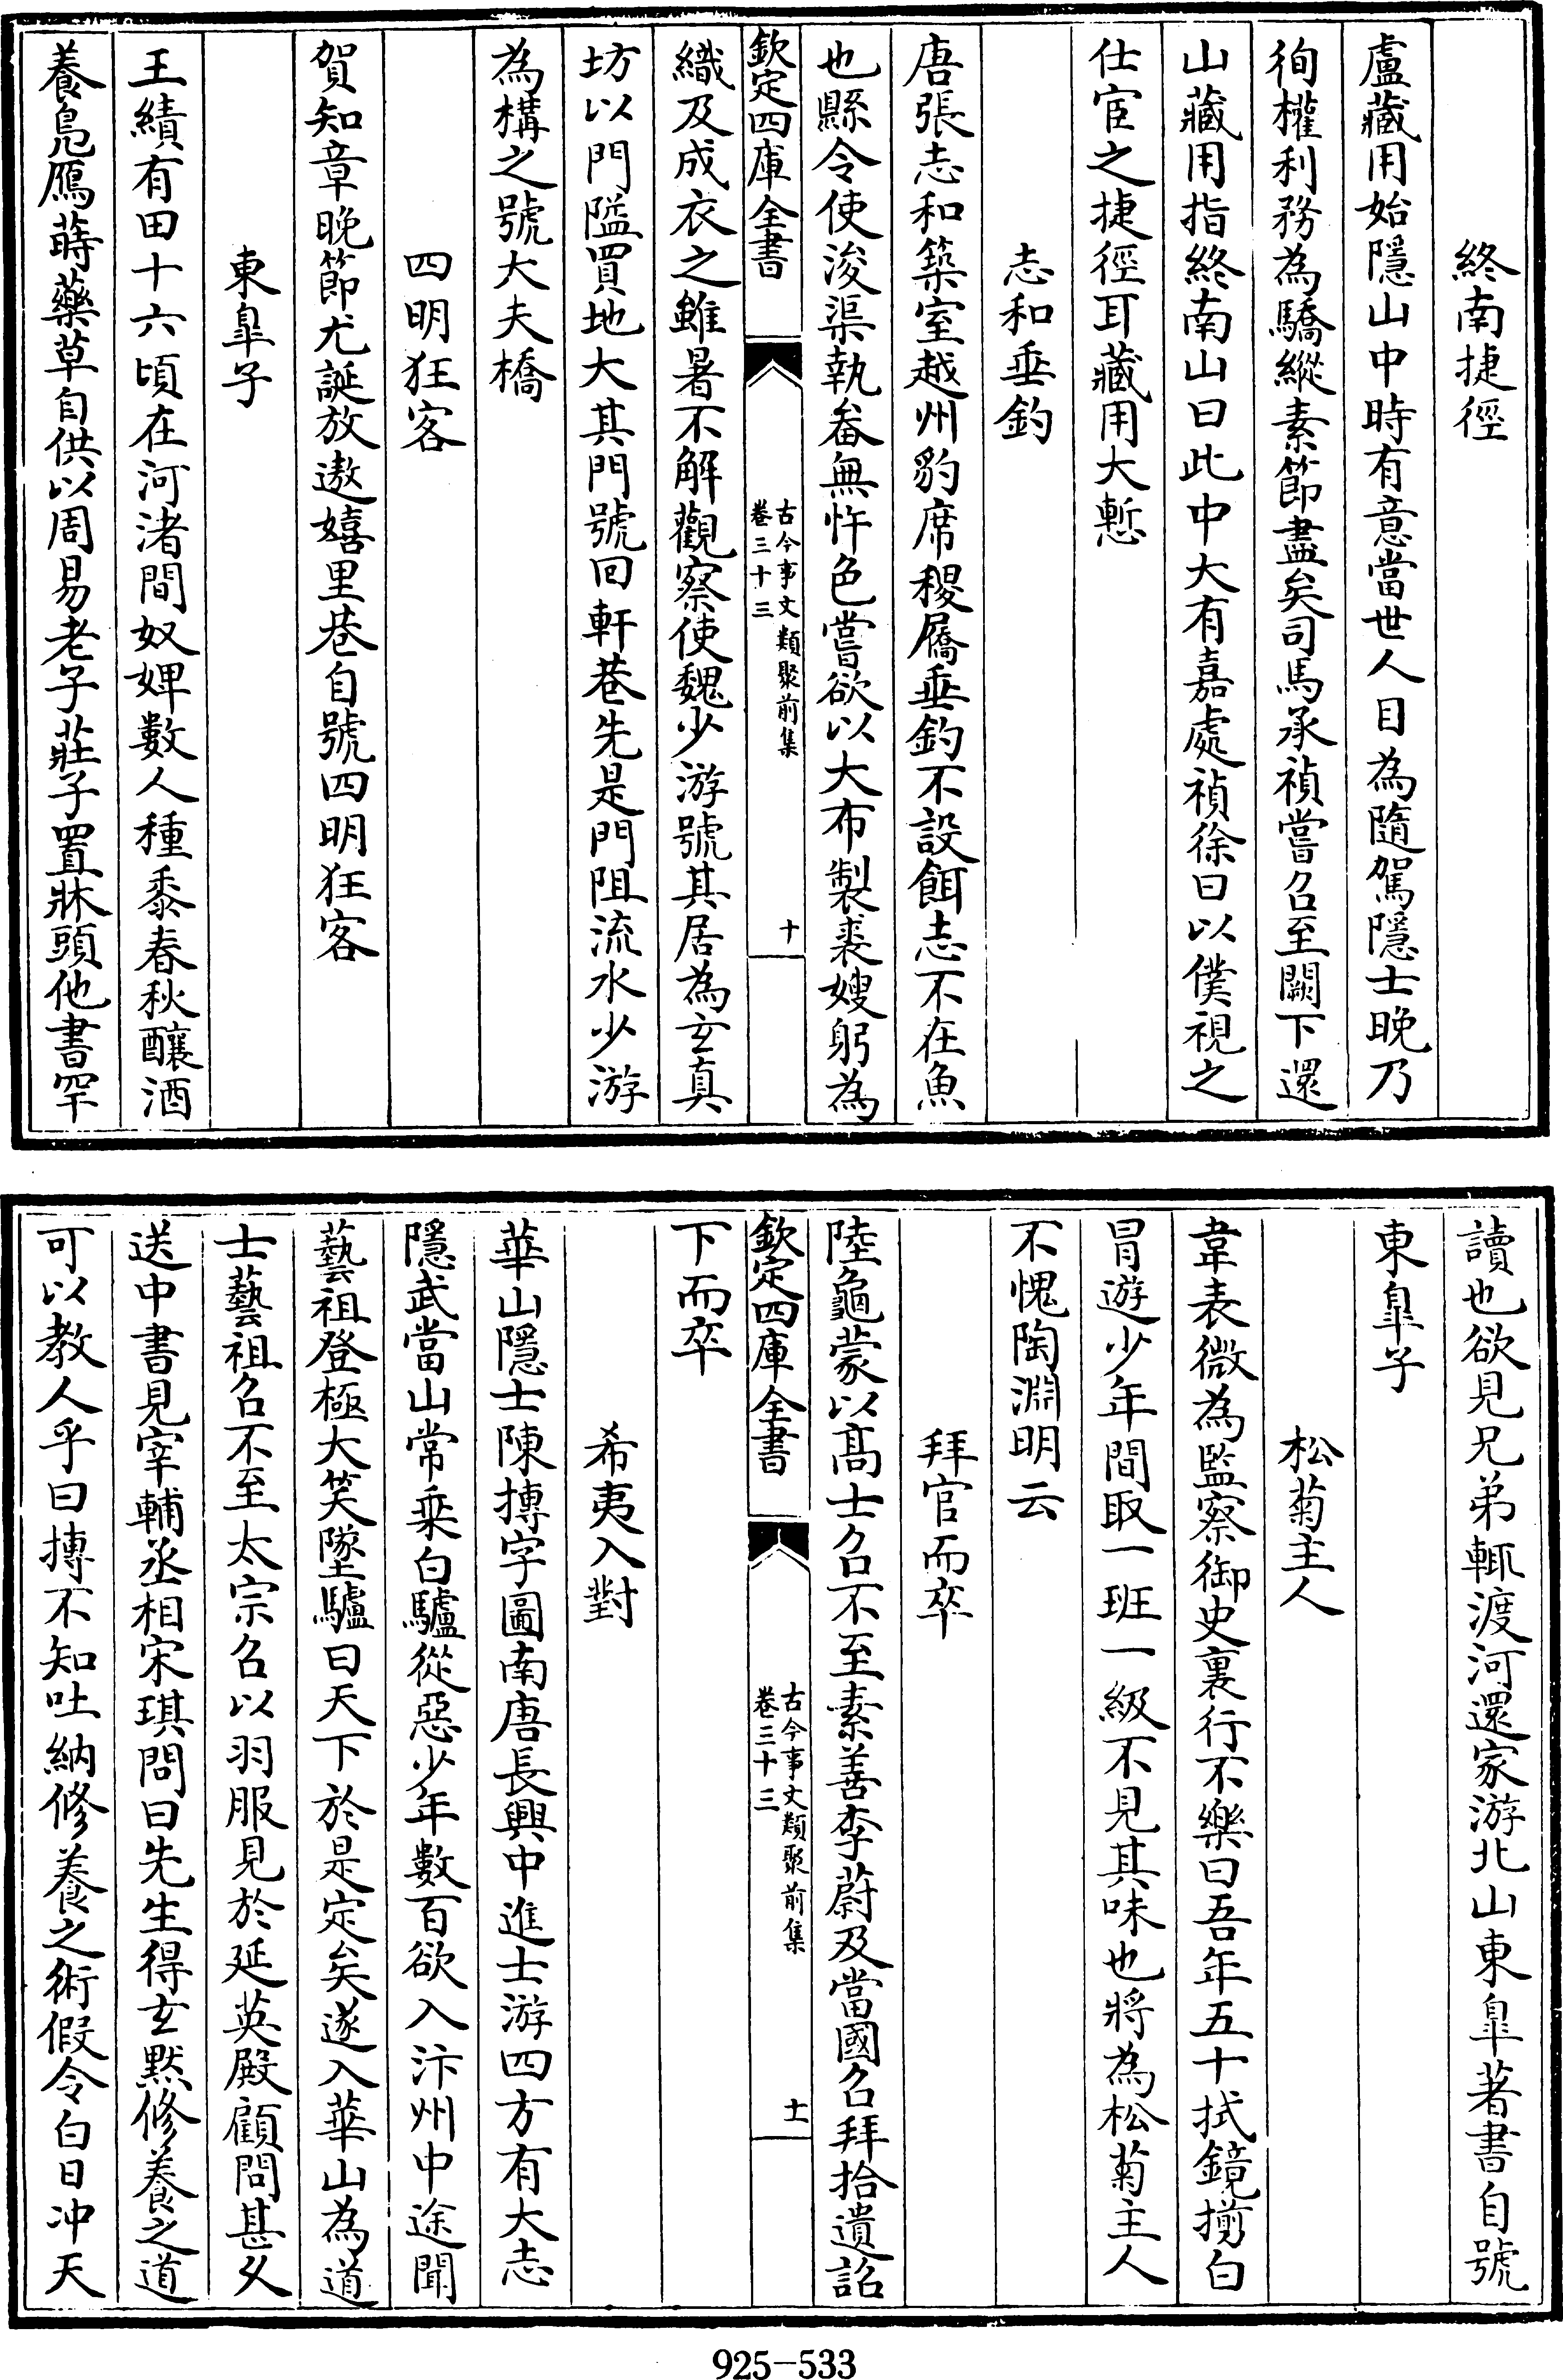 終南捷徑
盧藏用始隱山中時有意當世人目為隨駕隱士晚乃
徇權利務為驕縱素節盡矣司馬承禎嘗召至闕下還
山藏用指終南山曰此中大有嘉處禎徐曰以僕視之
仕宦之捷徑耳藏用大慙
志和垂釣
唐張志和築室越州豹席椶屩垂釣不設餌志不在魚
也縣令使浚渠執畚無忤色嘗欲以大布製裘嫂躬為
欽定四庫全書
古今事文類聚前集
卷三十三
十
織及成衣之雖暑不解觀察使魏少游號其居為玄真
坊以門隘買地大其門號回軒巷先是門阻流水少游
為構之號大夫橋
四明狂客
賀知章晚節尤誕放遨嬉里巷自號四明狂客
東臯子
王績有田十六頃在河渚間奴婢數人種黍春秋釀酒
養鳧鴈蒔藥草自供以周易老子莊子置牀頭他書罕
讀也欲見兄弟輒渡河還家游北山東臯著書自號
東臯子
松菊主人
韋表微為監察御史裏行不樂曰吾年五十拭鏡擶白
冐遊少年間取一班一級不見其味也將為松菊主人
不愧陶淵明云
拜官而卒
陸龜蒙以高士召不至素善李蔚及當國召拜拾遺詔
欽定四庫全書
古今事文類聚前集
卷三十三
十一
下而卒
希夷入對
華山隱士陳摶字圖南唐長興中進士游四方有大志
隱武當山常乘白驢從惡少年數百欲入汴州中途聞
藝祖登極大笑墜驢曰天下於是定矣遂入華山為道
士藝祖召不至太宗召以羽服見於延英殿顧問甚久
送中書見宰輔丞相宋琪問曰先生得玄默修養之道
可以教人乎曰摶不知吐納修養之術假令白日冲天
925-533